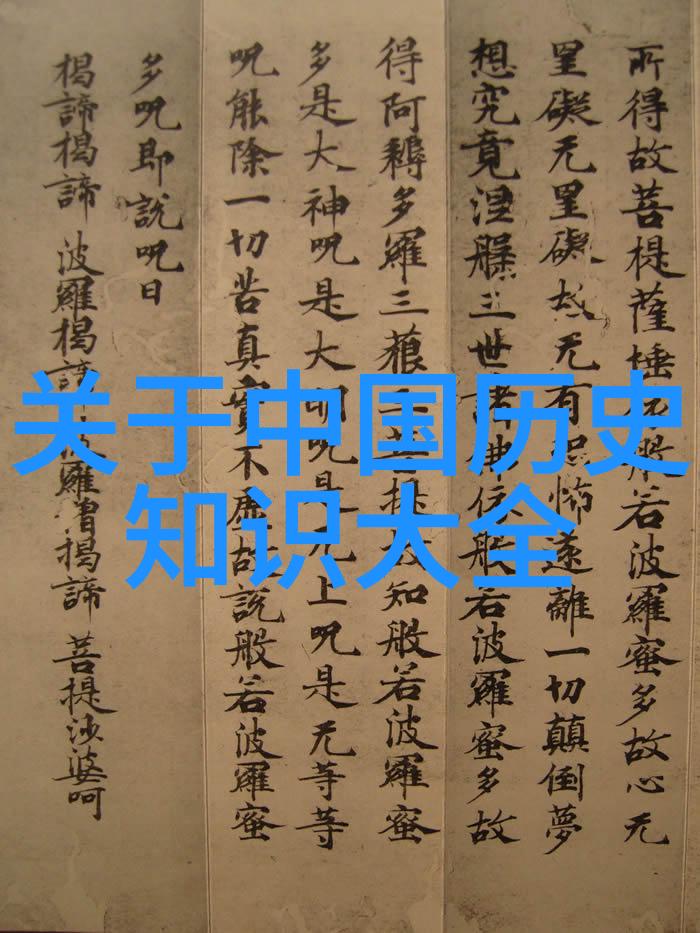 关于中国历史
知识大全
所得故菩提薩埵依般若波羅蜜多故心无
罣礙无罣礙故无有恐怖遠離一切顛倒夢
想究竟涅槃三世諸佛依般若波羅蜜多故
得阿耨多羅三藐三菩提故知般若波羅蜜
多是大神呪是大明呪是无上呪是无等等
呪能除一切苦真實不虛故說般若波羅蜜
多呪即說呪曰
揭諦揭諦 波羅揭諦 波羅僧揭諦 菩提沙婆呵